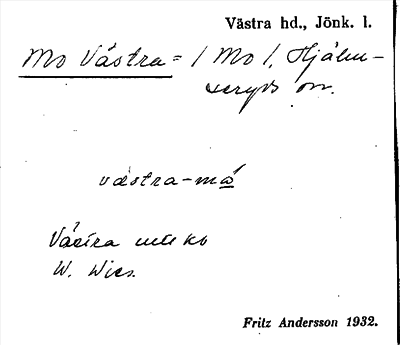 Västra hd., Jönk. l.
Mo Västra = / Mo /, Hjälm-
seryds sn.
västra-må
Västra
W. Wies.
Fritz Andersson 1932.